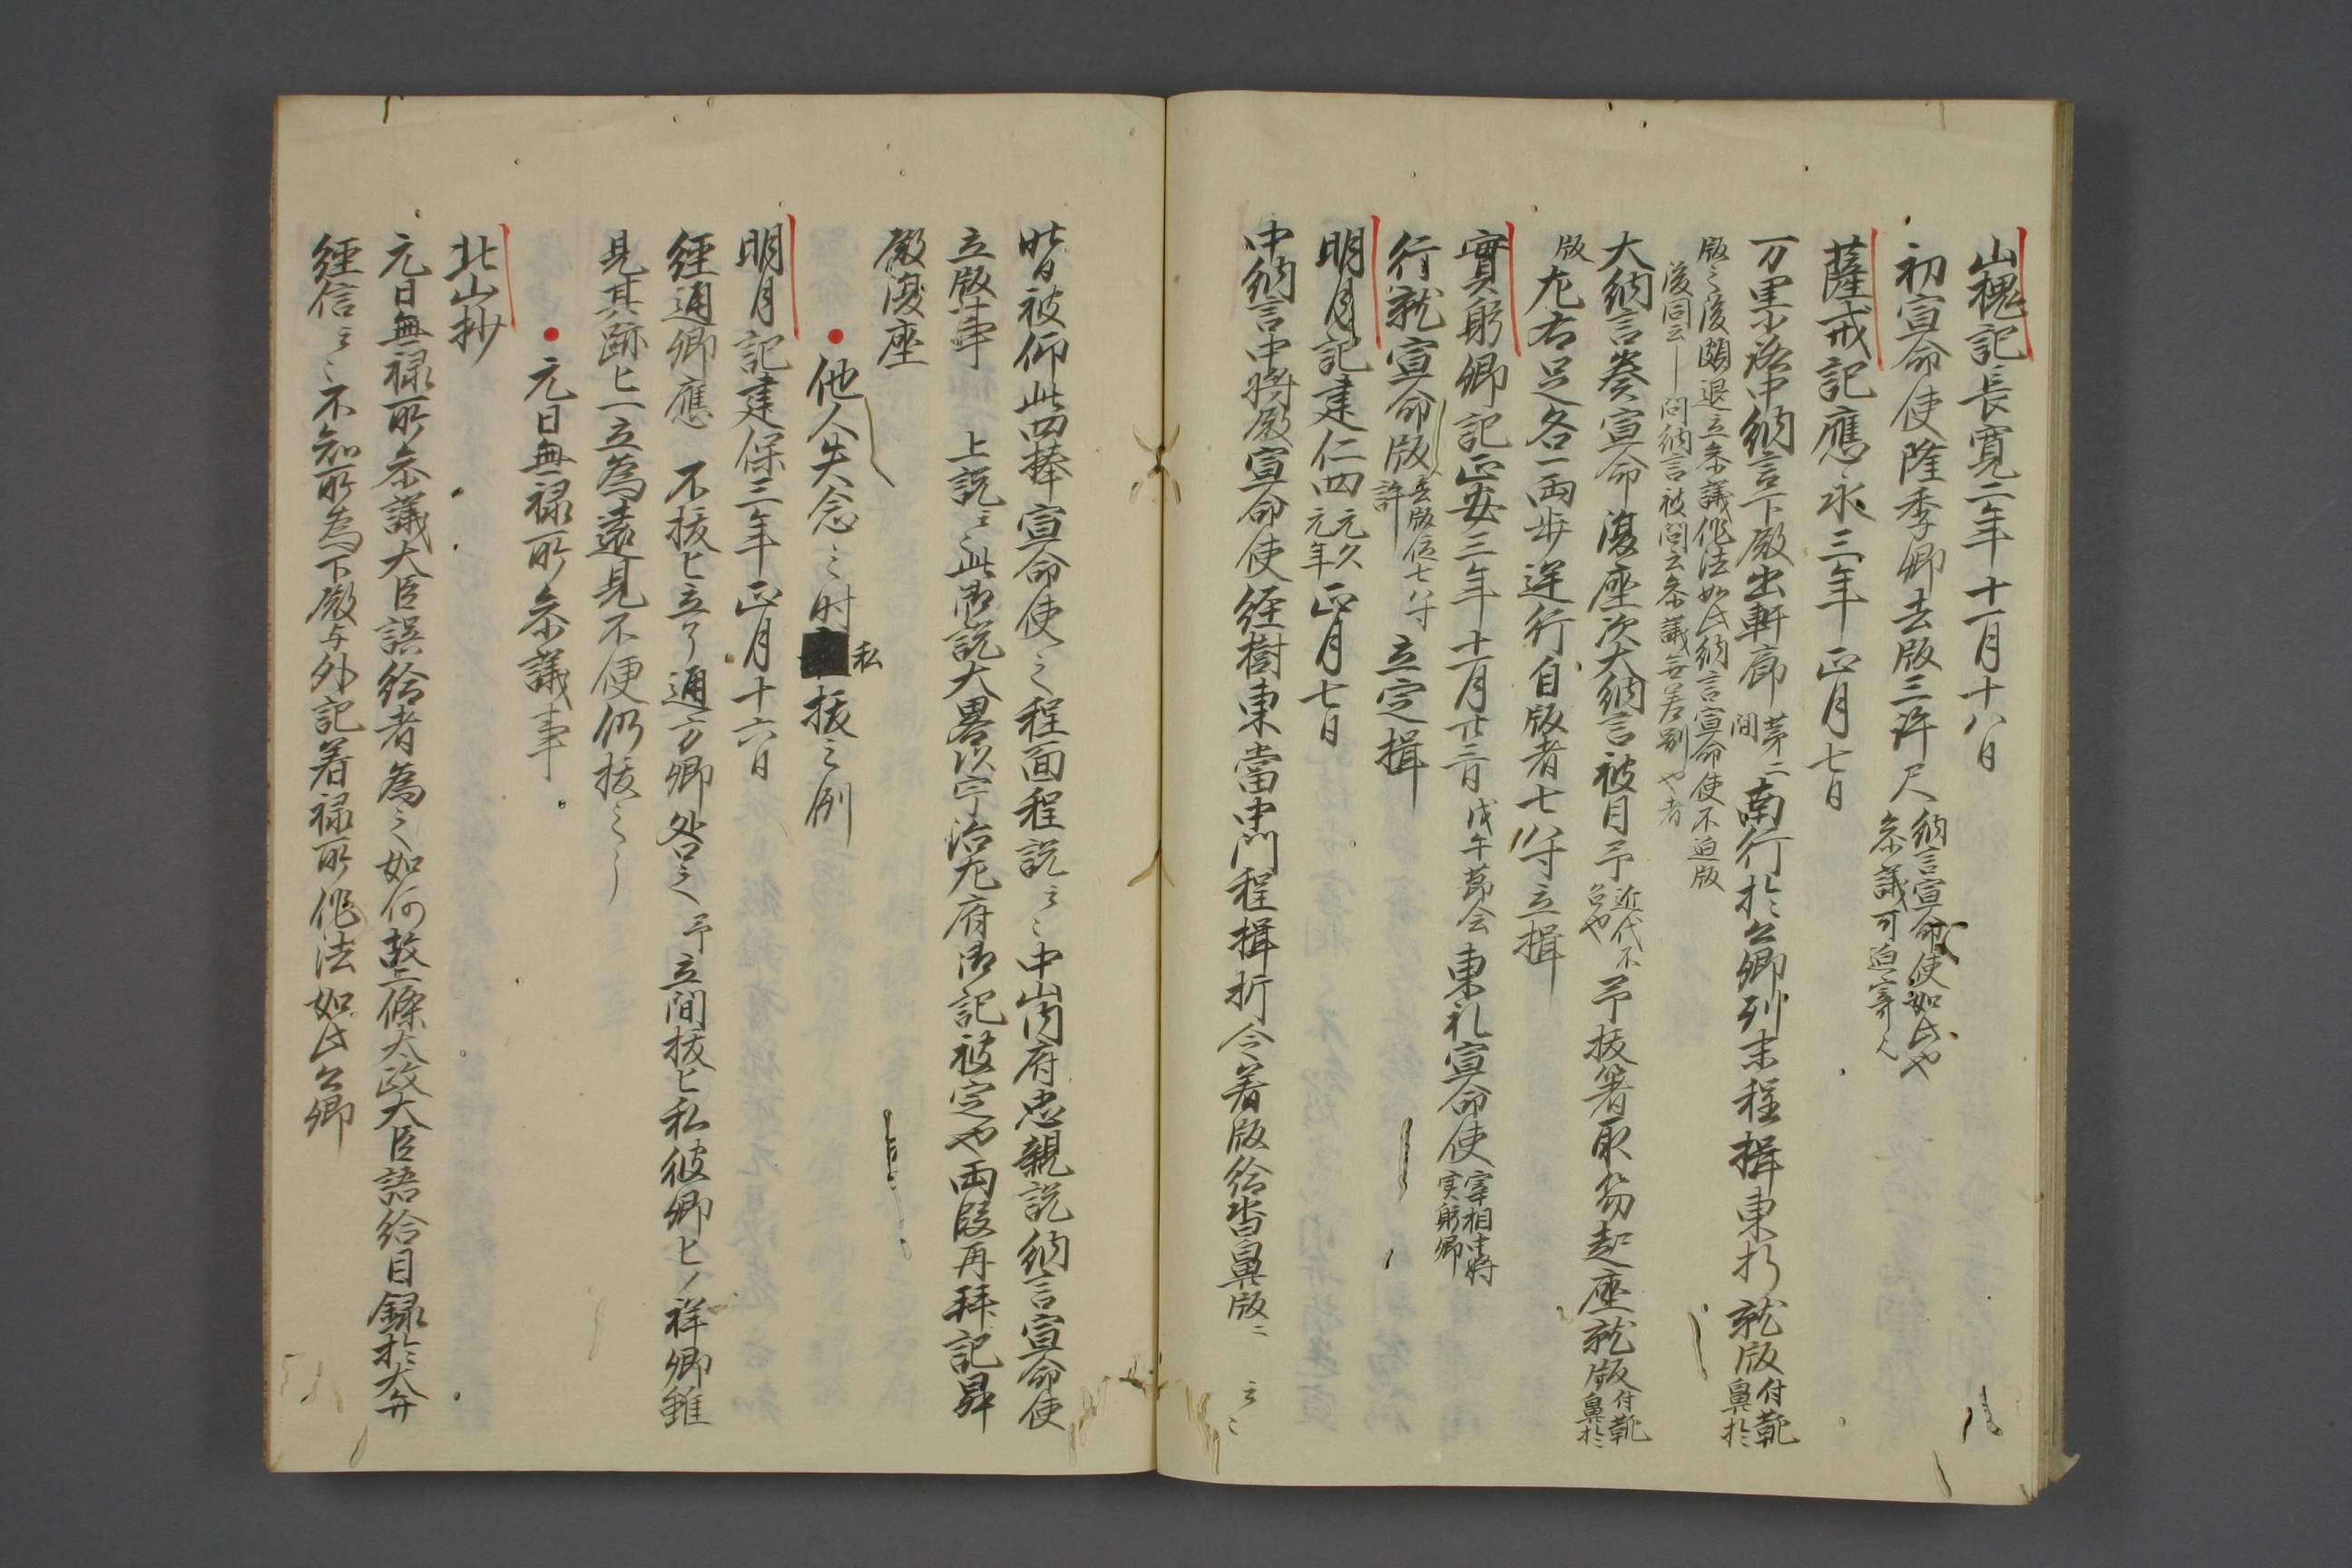 山槐記長寛二年十一月十八日
初宣命使隆季卿去版三許尺 納言宣命使如此や 参議可迫寄之
薩戒記應永三年正月七日
万里小路中納言下殿出軒廊 第二間 南行於公卿列末程揖東折就版 付靴鼻於
版之後頗退立参議作法如此納言宣命使不迫版
後同云 問納言被問云参議無差別や者
大納言奏宣命復座次大納言被目予 近代不召や 予抜箸取笏起座就版 付靴鼻於
版 左右足各一両歩逆行自版者七八寸立揖
實躬卿記正安三年十一月廿三日 戊午節会 東礼宣命使 宰相中将実躬卿
行就宣命版 去版位七八寸許 立定揖
明月記建仁四 元久元年 正月七日
中納言中将殿宣命使経樹東當中門程揖折 令着版給沓鼻版ニ 云々
昔日被仰此四捧宣命使之程面程説云々中山内府忠親説納言宣命使
立版事 上説云此即説大畧以宇治左府御記被定や両段再拝記昇
殿復座
他人失念之時 私 抜之例
明月記建保三年正月十六日
經通卿應 不抜匕立了通方卿咎之予立間抜匕私彼卿匕ノ祥卿雖
見其跡匕一立為遠見不便仍抜之
元日無禄所参議事
北山抄
元日無禄所参議大臣誤給者為之如何故二條太政大臣語給目録於大弁
經信云々不知所為下殿与外記着禄所作法如此公卿